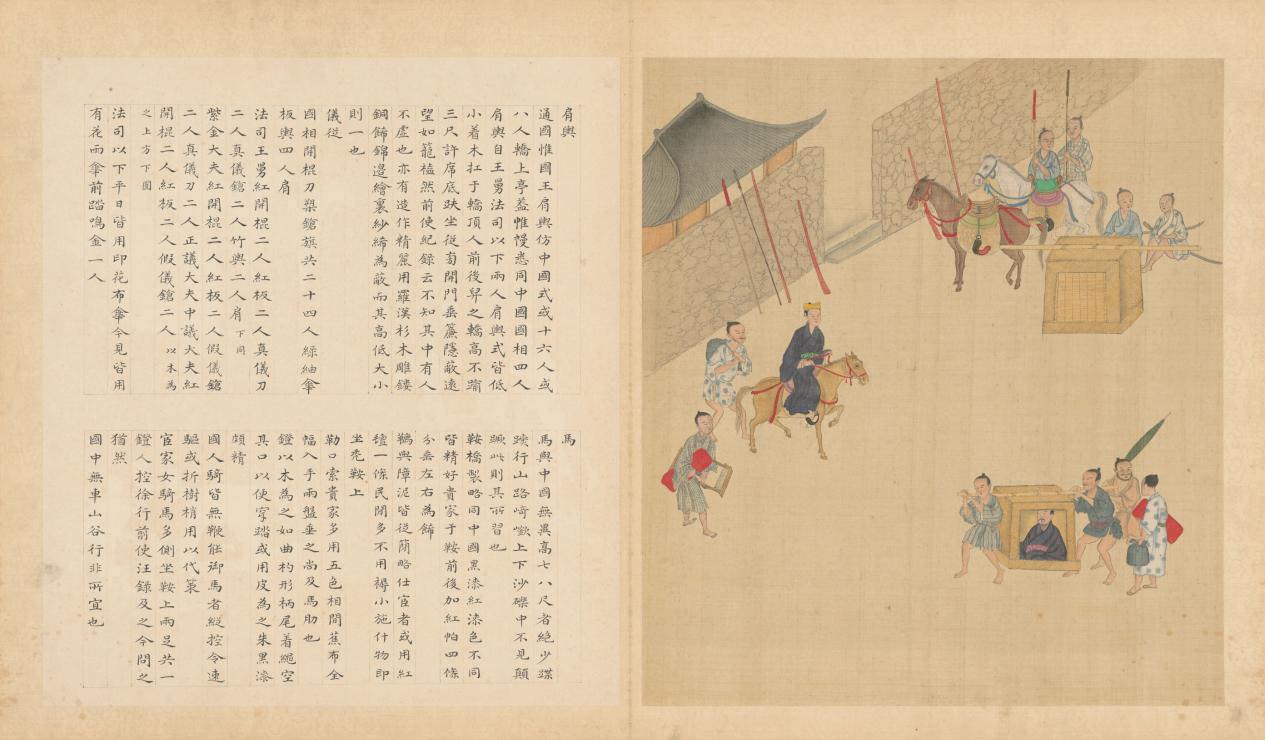 肩輿
通國惟國王肩輿仿中國式或十六人或
八人轎上亭蓋帷幔悉同中國國相四人
肩輿自王舅法司以下兩人肩輿式皆低
小着木扛于轎頂人前後舁之轎高不踰
三尺許席底趺坐從旁開門垂簾隱蔽遠
望如籠榼然前使紀録云不知其中有人
不虛也亦有造作精麗用羅漢杉木雕鏤
銅飾錦邉繪裏紗締為蔽而其高低大小
則一也
儀從
國相開棍刀槊鎗旗共二十四人綠紬傘
板輿四人肩
法司王舅紅開棍二人紅板二人真儀刀
二人真儀鎗二人竹輿二人肩下同
紫金大夫紅開棍二人紅板二人假儀鎗
二人真儀刀二人正議大夫中議大夫紅
開棍二人紅板二人假儀鎗二人以木為
之上方下圓
法司以下平日皆用印花布傘今見皆用
有花雨傘前踏鳴金一人
馬
馬與中國無異高七八尺者絶少蹀
躞行山路崎嶇上下沙礫中不見顛
蹶此則其所習也
鞍橋製略同中國黑漆紅漆色不同
皆精好貴家于鞍前後加紅帕四條
分垂左右為飾
韉與障泥皆從簡略仕宦者或用紅
氊一條民間多不用褥小施什物即
坐禿鞍上
勒口索貴家多用五色相間蕉布全
幅入手兩盤垂之尚及馬肋也
鐙以木為之如曲杓形柄尾着繩空
其口以便穿踏或用皮為之朱黑漆
頗精
國人騎皆無鞭能御馬者縱控令速
驅或折樹梢用以代策
宦家女騎馬多側坐鞍上兩足共一
鐙人控徐行前使汪録及之今問之
猶然
國中無車山谷行非所宜也